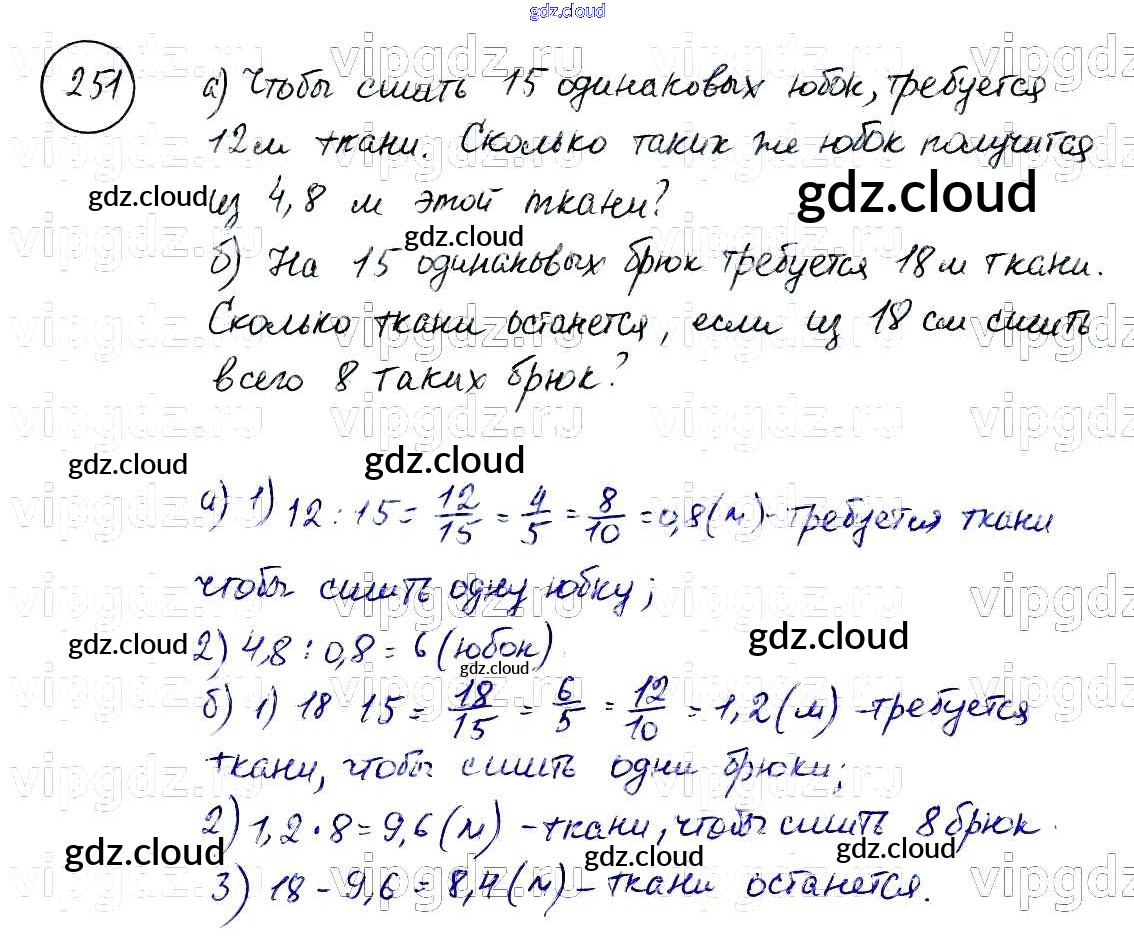 gdz.cloud
251
а) Чтобы сшить 15 одинаковых юбок, требуется
12 м ткани. Сколько таких же юбок получится
из 4,8 м этой ткани?
gdz.cloud
gdz.cloud
gdz.cloud
б) На 15 одинаковых брюк требуется 18 м ткани.
Сколько ткани останется, если из 18 см сшить
всего 8 таких брюк?
vipgdz.ru
gdz.cloud
gdz.cloud
а) 1) 12 : 15 = 12/15 = 4/5 = 8/10 = 0,8 (м) - требуется ткани
чтобы сшить одну юбку;
2) 4,8 : 0,8 = 6 (юбок)
gdz.cloud
gdz.cloud
gdz.cloud
б) 1) 18 15 = 18/15 = 6/5 = 12/10 = 1,2 (м) - требуется
ткани, чтобы сшить одни брюки;
2) 1,2 · 8 = 9,6 (м) - ткани, чтобы сшить 8 брюк.
gdz.cloud
gdz.cloud
gdz.cloud
3) 18 - 9,6 = 8,4 (м) - ткани останется.